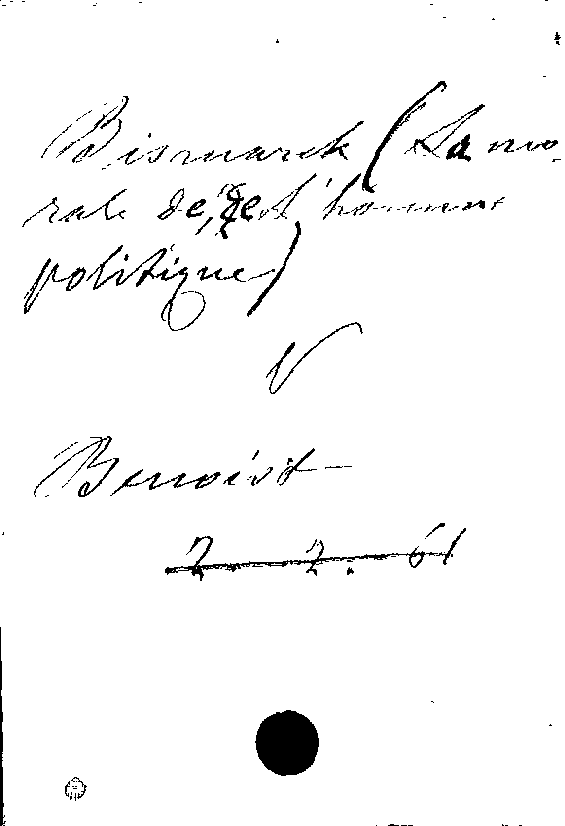 Bismarck (La mo-
rale de, de l'homme
politique)
V
Benoist
2. 2. 61